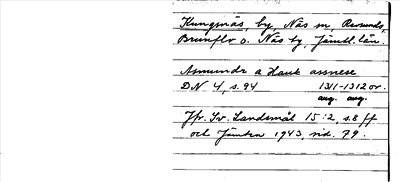 Kungsnäs, by, Näs sn, Rasunds,
Brunflo o. Näs tg, Jämtl. län.
Asmundr a Hauk assnese
DN 4, s. 94 1311-1312 or.
aug. aug.
Jfr. Sv. Landsmål 15:2, s. 8 ff
och Jämten 1943, sid. 79.